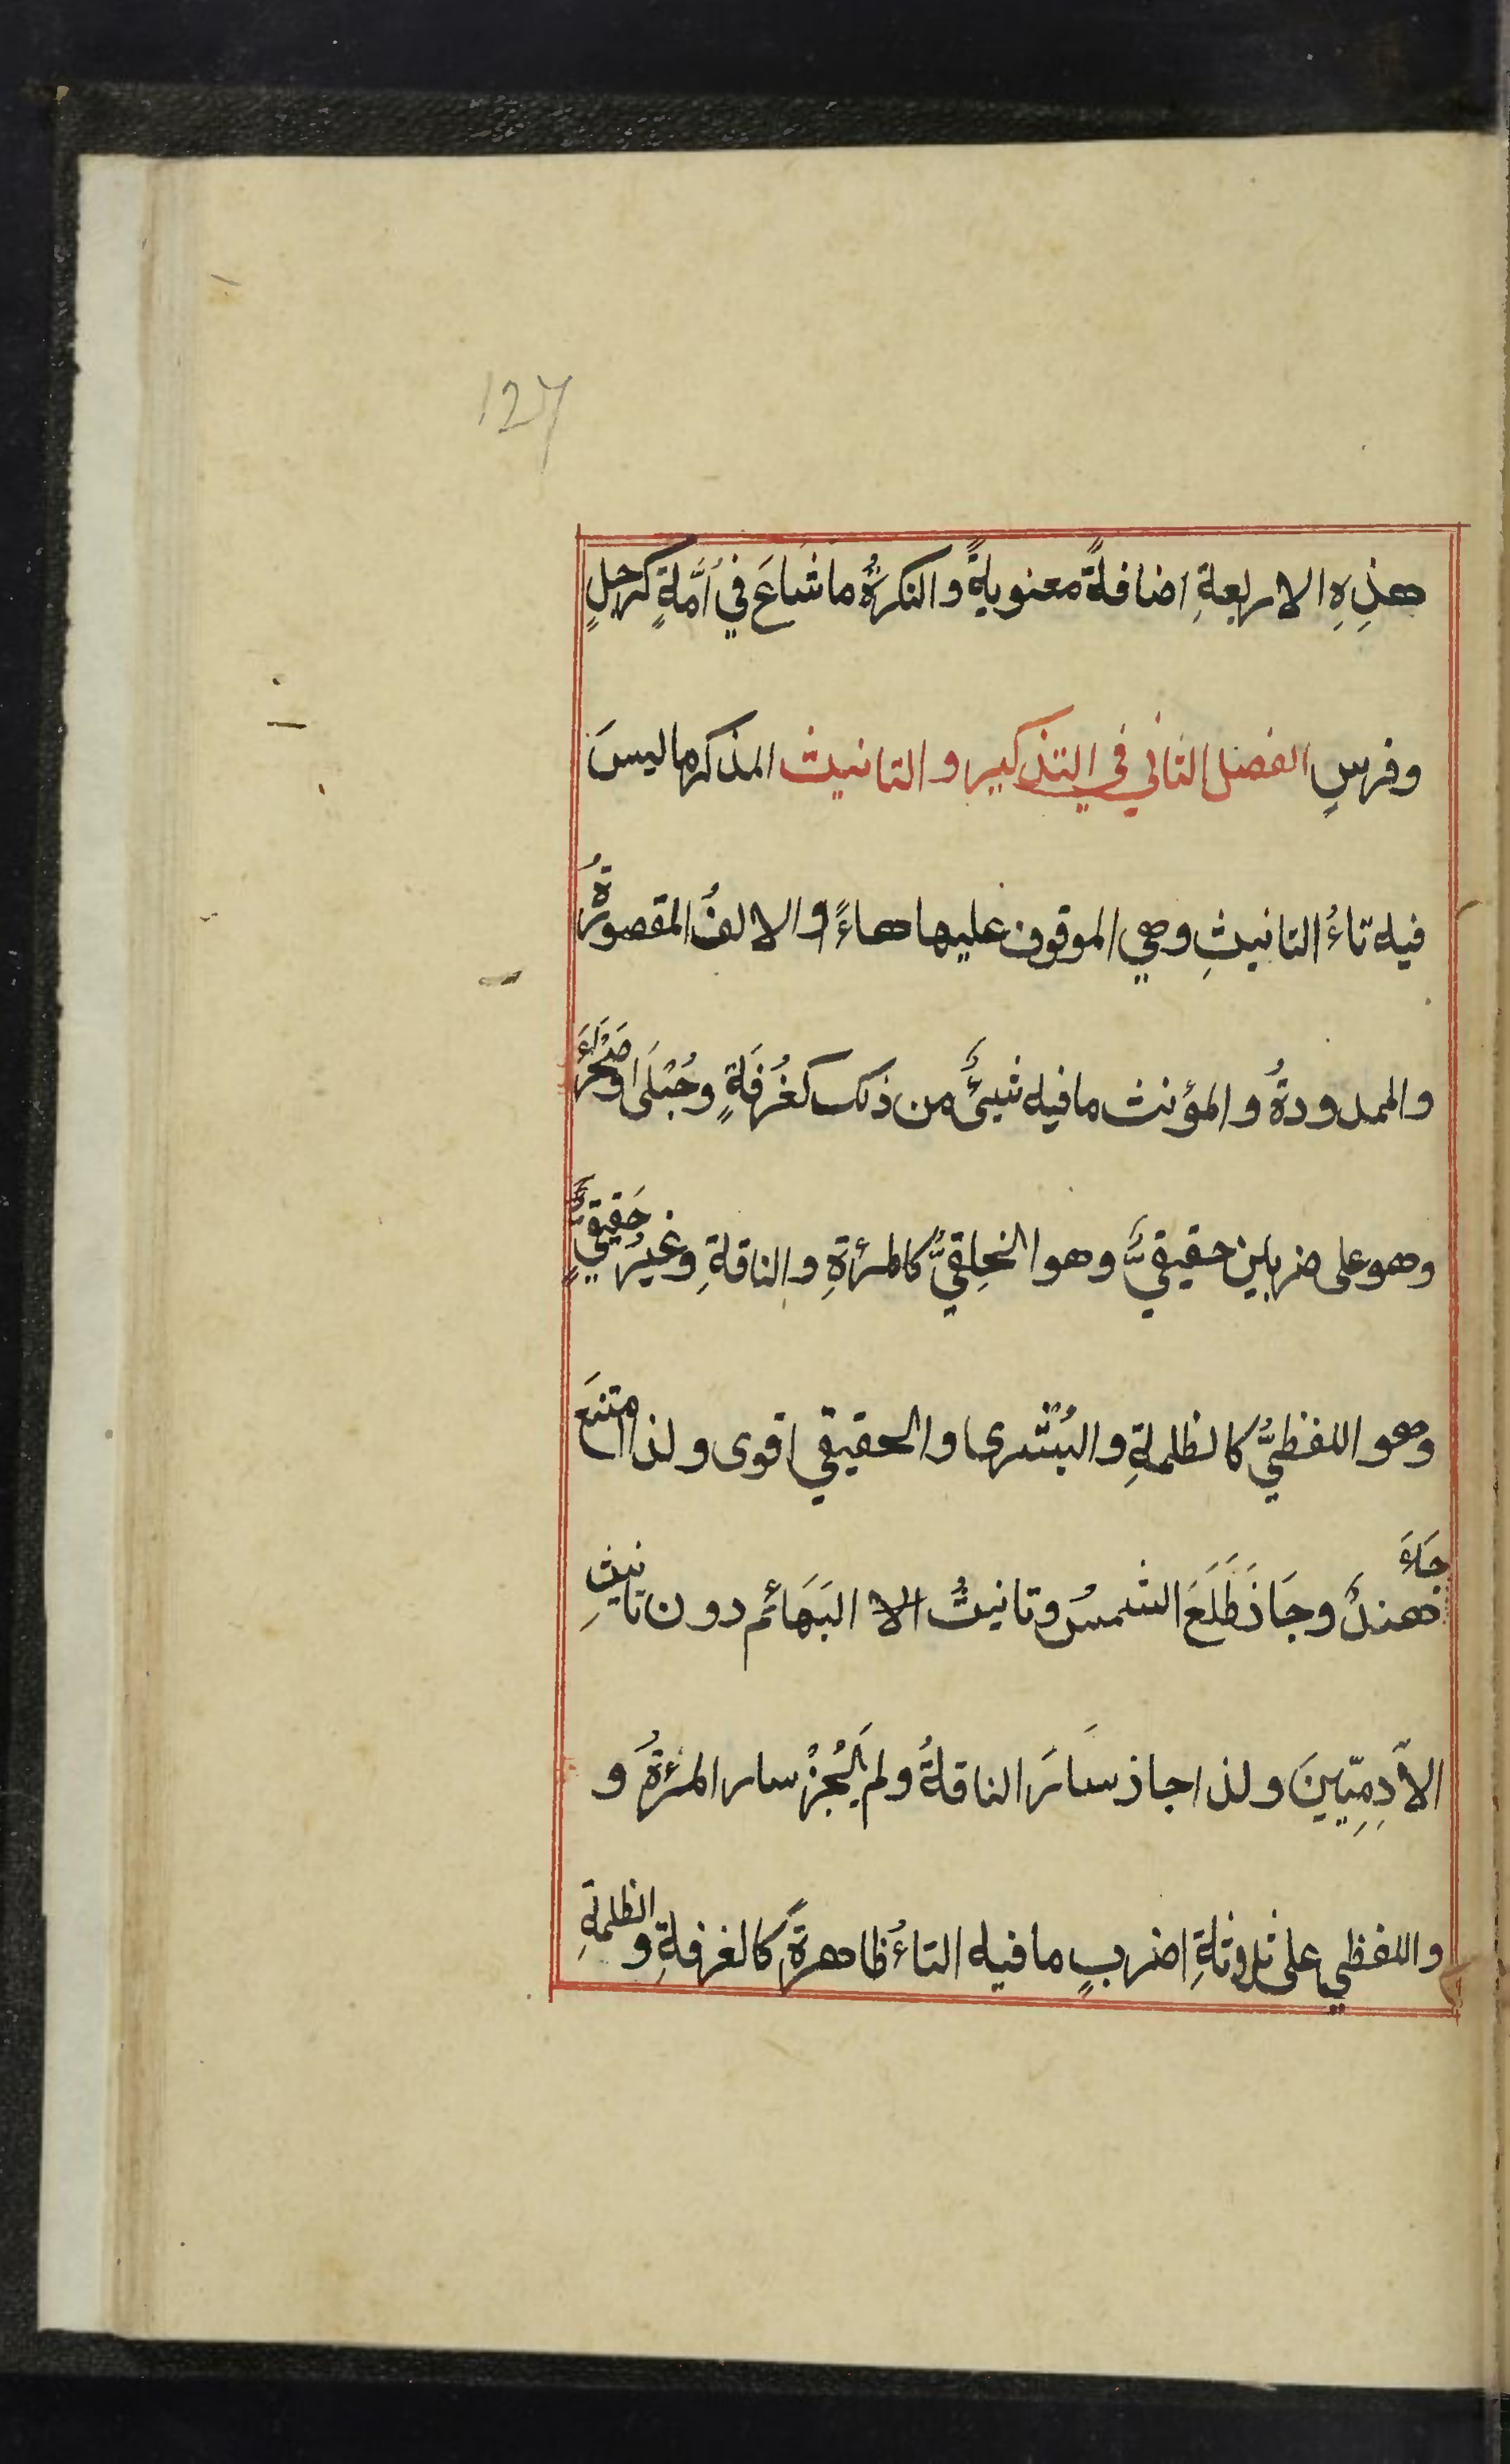 127
هذِهِ الاربعةِ اضافةً معنويةً والنكرةُ ما شَاعَ في اُمَّةٍ كرجلٍ
وفرسٍ الفصل الثاني في التذكير والتانيث المذكر ما ليسَ
فيه تاءُ التانيثِ وهي الموقوف عليها هاءً والالفُ المقصورةُ
والممدودةُ والمؤنث ما فيه شيئٌ من ذلك كغُرفَةٍ وحُبْلَى وصَحْرَاءَ
وهو على ضربين حقيقيٌّ وهو الخِلقيُّ كالمرءةِ والناقةِ وغيرُ حَقِيقيٍّ
وهو اللفظيُّ كالظلمةِ والبُشْرى والحقيقي اقوى ولذا امتنعَ
جَاءَ هندٌ وجَاز طَلَعَ الشمسُ وتانيثُ البَهَائم دون تانيثِ
الآدِمِيّينَ ولذا جاز سَارَ الناقةُ ولم يَجُزْ سار المرءةُ و
واللفظي على ثلوثةِ اضربٍ ما فيه التاءُ ظاهرةً كالغرفةِ والظلمةِ